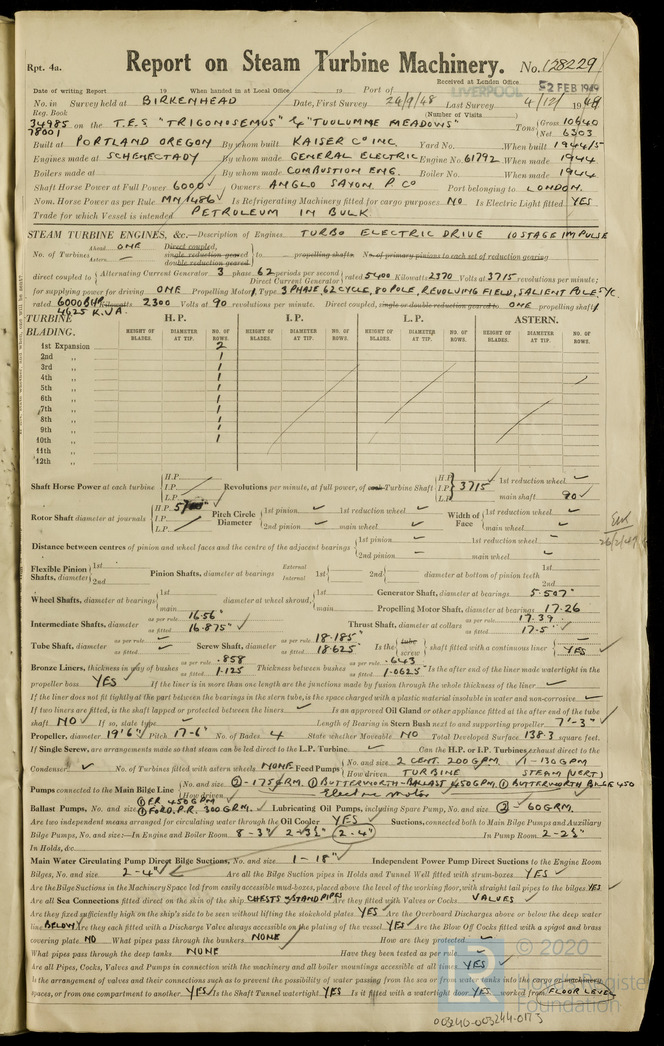 Rpt. 4a.
Report on Steam Turbine Machinery. No. 128229
Received at London Office
LIVERPOOL 2 FEB 1949
Date of writing Report 19 When handed in at Local Office 19 Port of
No. in Survey held at BIRKENHEAD Date, First Survey 24/9/48 Last Survey 4/12/ 1948
Reg. Book (Number of Visits
34985 on the T.E.S "TRIGONOSEMUS" "TUOLUMNE MEADOWS" Tons Gross 10640
78001 Net 6303
Built at PORTLAND OREGON By whom built KAISER CO INC. Yard No. When built 1944/5
Engines made at SCHENECTADY By whom made GENERAL ELECTRIC Engine No. 61792 When made 1944
Boilers made at By whom made COMBUSTION ENG. Boiler No. When made 1944
Shaft Horse Power at Full Power 6000 Owners ANGLO SAXON P. CO Port belonging to LONDON
Nom. Horse Power as per Rule MN 1486 Is Refrigerating Machinery fitted for cargo purposes NO Is Electric Light fitted YES
Trade for which Vessel is intended PETROLEUM IN BULK
STEAM TURBINE ENGINES, &c.—Description of Engines. TURBO ELECTRIC DRIVE 10 STAGE IMPULSE
No. of Turbines Ahead ONE Astern Direct coupled, single reduction geared double reduction geared to propelling shafts. No. of primary pinions to each set of reduction gearing
direct coupled to Alternating Current Generator 3 phase 62 periods per second Direct Current Generator rated 5400 Kilowatts 2370 Volts at 3715 revolutions per minute;
for supplying power for driving ONE Propelling Motor, Type 3 PHASE, 62 CYCLE, 80 POLE, REVOLVING FIELD, SALIENT POLE, SYC
rated 6000 BHP Kilowatts 2300 Volts at 90 revolutions per minute. Direct coupled, single or double reduction geared to ONE propelling shaft
4625 K.VA.
TURBINE BLADING. H.P. I.P. L.P. ASTERN.
HEIGHT OF BLADES. DIAMETER AT TIP. NO. OF ROWS. HEIGHT OF BLADES. DIAMETER AT TIP. NO. OF ROWS. HEIGHT OF BLADES. DIAMETER AT TIP. NO. OF ROWS. HEIGHT OF BLADES. DIAMETER AT TIP. NO. OF ROWS.
1st Expansion 2
2nd ,, 1
3rd ,, 1
4th ,, 1
5th ,, 1
6th ,, 1
7th ,, 1
8th ,, 1
9th ,, 1
10th ,, 1
11th ,,
12th ,,
Shaft Horse Power at each turbine H.P. I.P. L.P. Revolutions per minute, at full power, of each Turbine Shaft H.P. I.P. L.P. 3715 1st reduction wheel
main shaft 90
Rotor Shaft diameter at journals H.P. I.P. L.P. Pitch Circle Diameter 1st pinion 1st reduction wheel Width of Face 1st reduction wheel
2nd pinion main wheel main wheel
Distance between centres of pinion and wheel faces and the centre of the adjacent bearings 1st pinion 1st reduction wheel
2nd pinion main wheel
Flexible Pinion Shafts, diameter 1st 2nd Pinion Shafts, diameter at bearings External Internal 1st 2nd diameter at bottom of pinion teeth 1st 2nd
Wheel Shafts, diameter at bearings 1st main diameter at wheel shroud, 1st main Generator Shaft, diameter at bearings 5.507"
Propelling Motor Shaft, diameter at bearings 17.26
Intermediate Shafts, diameter as per rule 16.56" as fitted 16.875" Thrust Shaft, diameter at collars as per rule 17.39 as fitted 17.5"
Tube Shaft, diameter as per rule as fitted Screw Shaft, diameter as per rule 18.185" as fitted 18.625" Is the tube screw shaft fitted with a continuous liner YES
Bronze Liners, thickness in way of bushes as per rule .858 as fitted 1.125 Thickness between bushes as per rule .643 as fitted 1.0625" Is the after end of the liner made watertight in the
propeller boss YES If the liner is in more than one length are the junctions made by fusion through the whole thickness of the liner
If the liner does not fit tightly at the part between the bearings in the stern tube, is the space charged with a plastic material insoluble in water and non-corrosive
If two liners are fitted, is the shaft lapped or protected between the liners Is an approved Oil Gland or other appliance fitted at the after end of the tube
shaft NO If so, state type Length of Bearing in Stern Bush next to and supporting propeller 7'-3"
Propeller, diameter 19'6" Pitch 17-6" No. of Blades 4 State whether Moveable NO Total Developed Surface 138.3 square feet.
If Single Screw, are arrangements made so that steam can be led direct to the L.P. Turbine Can the H.P. or I.P. Turbines exhaust direct to the
Condenser No. of Turbines fitted with astern wheels NONE Feed Pumps No. and size 2 CENT. 200 GPM. 1-130 GPM
How driven TURBINE STEAM (VERT)
Pumps connected to the Main Bilge Line No. and size 2-175 GRM. 1 BUTTERWORTH-BALLAST 450 GPM, 1 BUTTERWORTH BILGE 450
How driven Electric motor
Ballast Pumps, No. and size 1 ER 450 GPM 1 FORD. P.R. 300 GRM. Lubricating Oil Pumps, including Spare Pump, No. and size 2 - 60 GRM.
Are two independent means arranged for circulating water through the Oil Cooler YES Suctions, connected both to Main Bilge Pumps and Auxiliary
Bilge Pumps, No. and size:—In Engine and Boiler Room 8-3" 2-3½" 2-4" In Pump Room 2-2½"
In Holds, &c
Main Water Circulating Pump Direct Bilge Suctions, No. and size 1-18" Independent Power Pump Direct Suctions to the Engine Room
Bilges, No. and size 2-4" Are all the Bilge Suction pipes in Holds and Tunnel Well fitted with strum-boxes YES
Are the Bilge Suctions in the Machinery Space led from easily accessible mud-boxes, placed above the level of the working floor, with straight tail pipes to the bilges YES
Are all Sea Connections fitted direct on the skin of the ship CHESTS & STANDPIPES Are they fitted with Valves or Cocks VALVES
Are they fixed sufficiently high on the ship's side to be seen without lifting the stokehold plates YES Are the Overboard Discharges above or below the deep water
line BELOW Are they each fitted with a Discharge Valve always accessible on the plating of the vessel YES Are the Blow Off Cocks fitted with a spigot and brass
covering plate NO What pipes pass through the bunkers NONE How are they protected
What pipes pass through the deep tanks NONE Have they been tested as per rule
Are all Pipes, Cocks, Valves and Pumps in connection with the machinery and all boiler mountings accessible at all times YES
Is the arrangement of valves and their connections such as to prevent the possibility of water passing from the sea or from water tanks into the cargo or machinery
spaces, or from one compartment to another YES Is the Shaft Tunnel watertight YES Is it fitted with a watertight door YES worked from FLOOR LEVEL
© 2020
Lloyd's Register
Foundation
003240-003244-0173